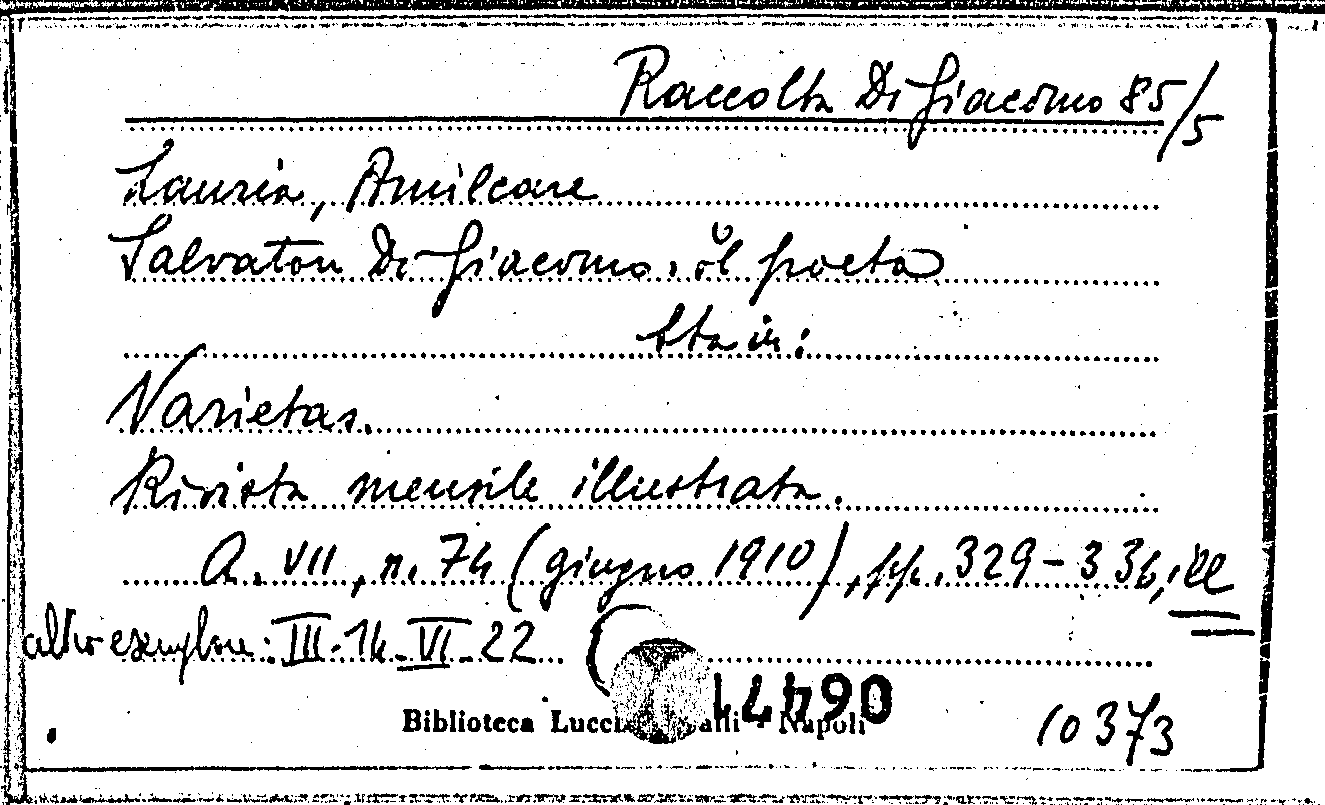 Raccolta Di Giacomo 85/5
Lauria, Amilcare
Salvatore Di Giacomo, il poeta
Sta in:
Varietas.
Rivista mensile illustrata.
A. VII, n. 74 (giugno 1910), pp. 329-336, ill
altro esemplare: III.14.VI.22
Biblioteca Lucchesi Palli - Napoli
10373